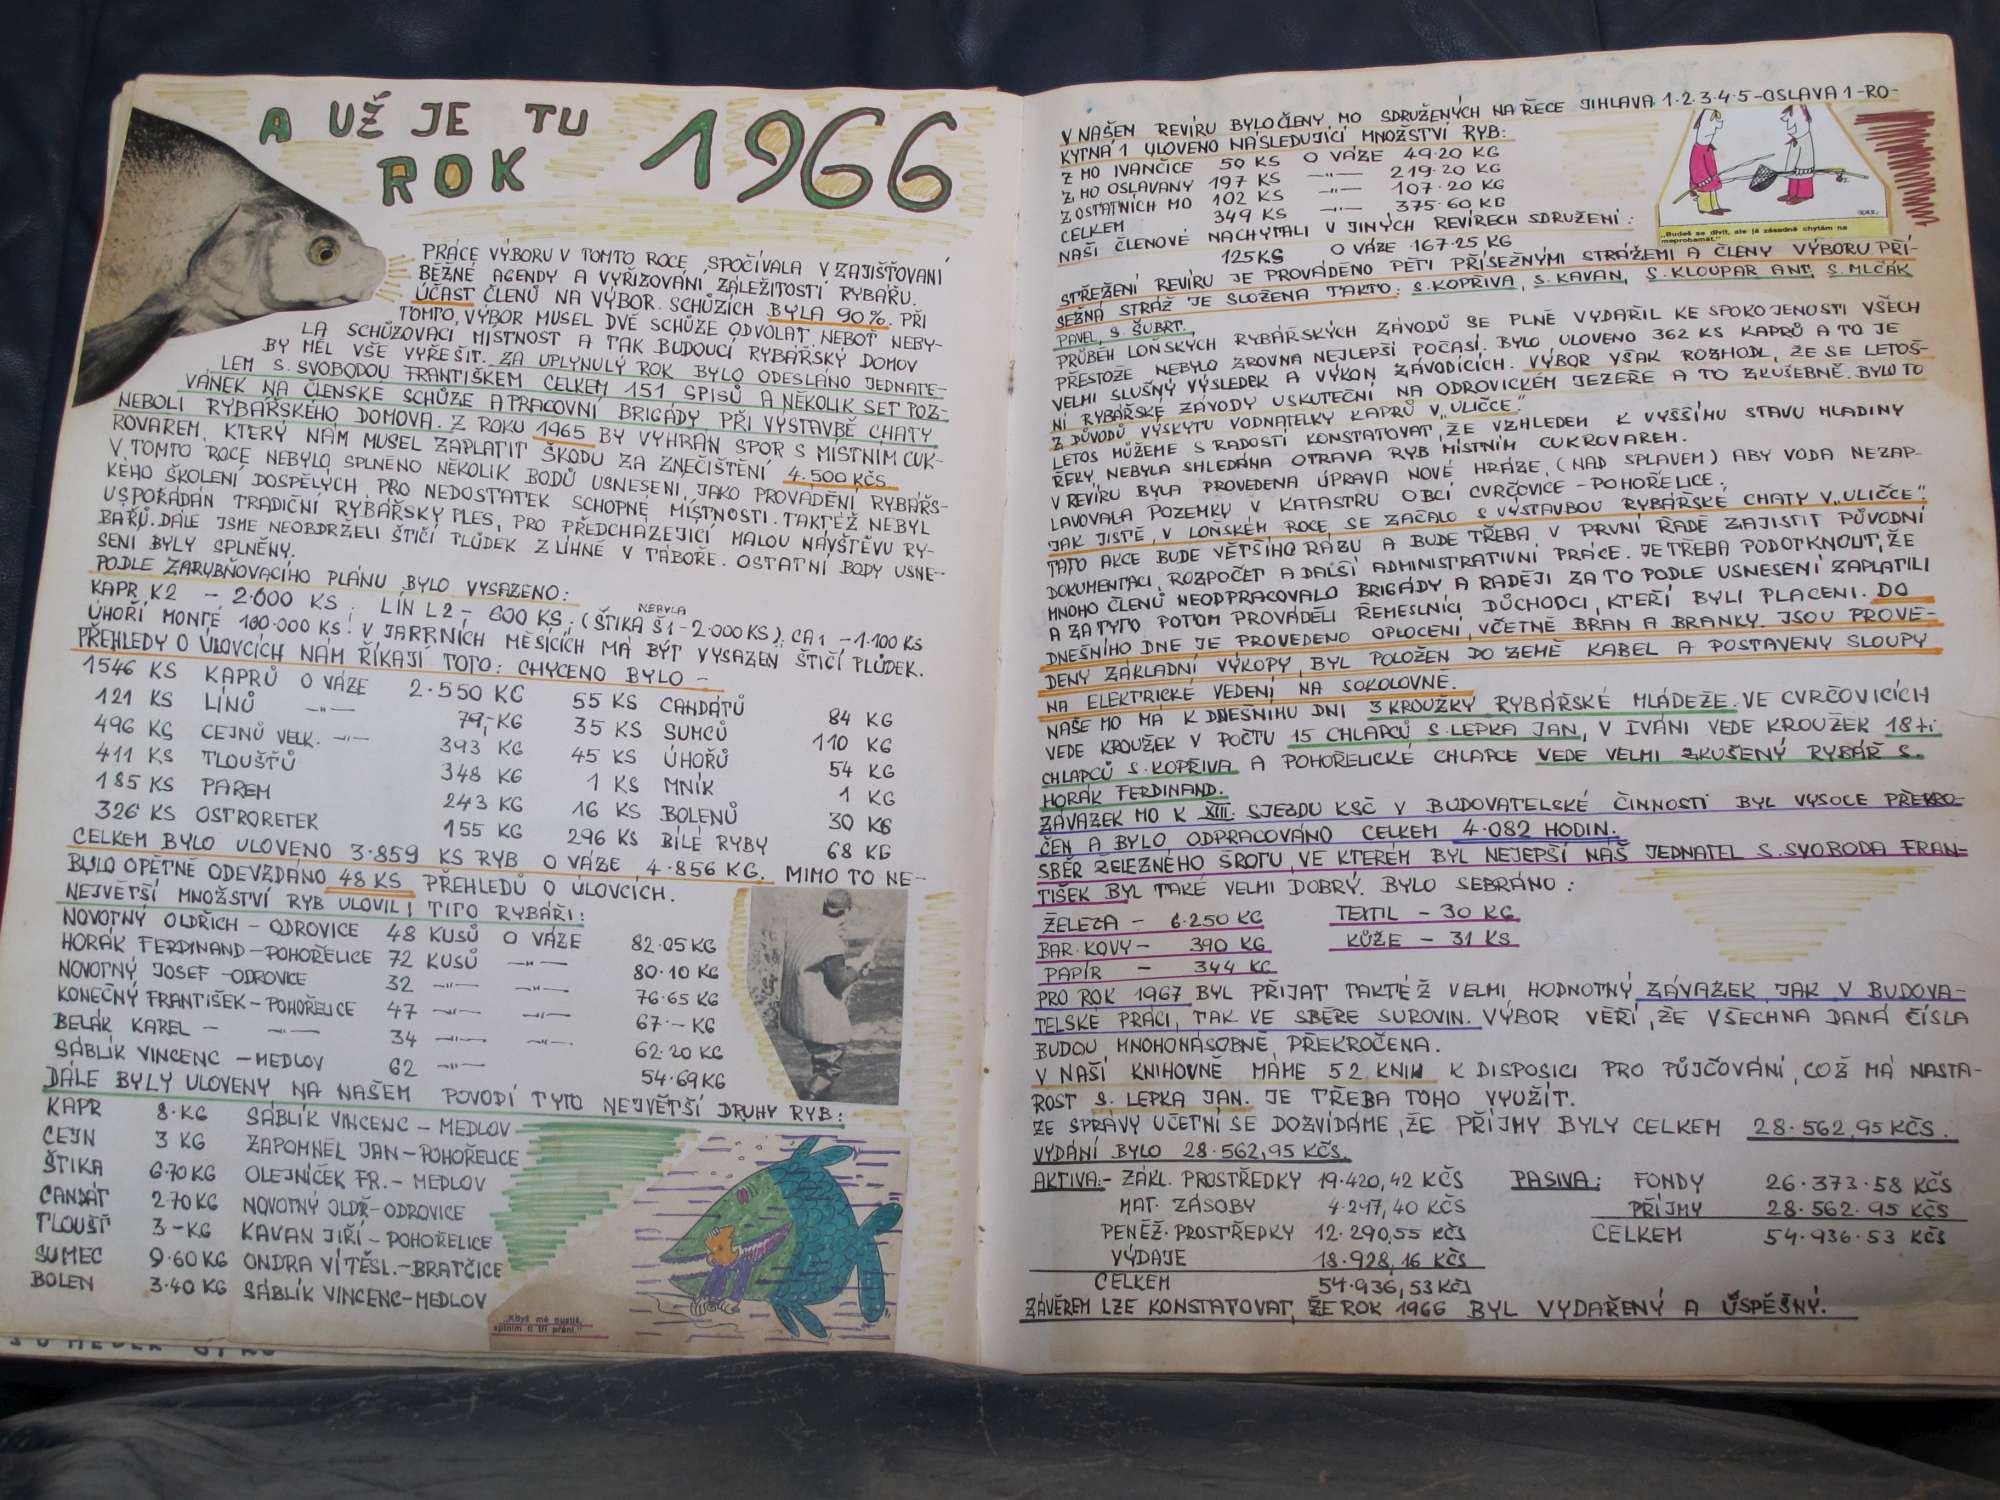 A UŽ JE TU
ROK 1966
PRÁCE VÝBORU V TOMTO ROCE SPOČÍVALA V ZAJIŠŤOVANÍ
BĚŽNÉ AGENDY A VYŘIZOVÁNÍ ZÁLEŽITOSTÍ RYBÁŘU.
ÚČAST ČLENŮ NA VÝBOR. SCHŮZÍCH BYLA 90%. PŘI
TOMTO, VÝBOR MUSEL DVĚ SCHŮZE ODVOLAT, NEBOŤ NEBY-
LA SCHŮZOVACÍ MÍSTNOST A TAK BUDOUCÍ RYBÁŘSKÝ DOMOV
BY MĚL VŠE VYŘEŠIT. ZA UPLYNULÝ ROK BYLO ODESLÁNO JEDNATE-
LEM S. SVOBODOU FRANTIŠKEM CELKEM 151 SPISŮ A NĚKOLIK SET POZ-
VÁNEK NA ČLENSKÉ SCHŮZE A PRACOVNÍ BRIGÁDY PŘI VÝSTAVBĚ CHATY
NEBOLI RYBÁŘSKÉHO DOMOVA. Z ROKU 1965 BY VYHRÁN SPOR S MÍSTNÍM CUK-
ROVAREM, KTERÝ NÁM MUSEL ZAPLATIT ŠKODU ZA ZNEČIŠTĚNÍ 4.500 KČS.
V TOMTO ROCE NEBYLO SPLNĚNO NĚKOLIK BODŮ USNESENI, JAKO PROVÁDĚNÍ RYBÁŘS-
KÉHO ŠKOLENÍ DOSPĚLÝCH, PRO NEDOSTATEK SCHOPNÉ MÍSTNOSTI. TAKTÉŽ NEBYL
USPOŘÁDÁN TRADIČNÍ RYBÁŘSKÝ PLES, PRO PŘEDCHÁZEJÍCÍ MALOU NÁVŠTĚVU RY-
BÁŘŮ. DÁLE JSME NEOBDRŽELI ŠTIČÍ PLŮDEK Z LÍHNĚ V TÁBOŘE. OSTATNÍ BODY USNE-
SENÍ BYLY SPLNĚNY.
PODLE ZARYBŇOVACÍHO PLÁNU BYLO VYSAZENO:
KAPR K2 - 2.000 KS; LÍN L2 - 600 KS; (ŠTIKA Š1 - 2.000 KS) NEBYLA; CA1 - 1.100 KS
ÚHOŘÍ MONTÉ 100.000 KS. V JARRNÍCH MĚSÍCÍCH MÁ BÝT VYSAZEN ŠTIČÍ PLŮDEK.
PŘEHLEDY O ÚLOVCÍCH NÁM ŘÍKAJÍ TOTO: CHYCENO BYLO -
1546 KS KAPRŮ O VÁZE 2.550 KG 55 KS CANDÁTŮ 84 KG
121 KS LÍNŮ -"- 79,- KG 35 KS SUMCŮ 110 KG
496 KG CEJNŮ VELK. -"- 393 KG 45 KS ÚHOŘŮ 54 KG
411 KS TLOUŠŤŮ 348 KG 1 KS MNÍK 1 KG
185 KS PAREM 243 KG 16 KS BOLENŮ 30 KG
326 KS OSTRORETEK 155 KG 296 KS BÍLÉ RYBY 68 KG
CELKEM BYLO ULOVENO 3.859 KS RYB O VÁZE 4.856 KG. MIMO TO NE-
BYLO OPĚTNĚ ODEVZDÁNO 48 KS PŘEHLEDŮ O ÚLOVCÍCH.
NEJVĚTŠÍ MNOŽSTVÍ RYB ULOVILI TITO RYBÁŘI:
NOVOTNÝ OLDŘICH - ODROVICE 48 KUSŮ O VÁZE 82.05 KG
HORÁK FERDINAND - POHOŘELICE 72 KUSŮ -"- 80.10 KG
NOVOTNÝ JOSEF - ODROVICE 32 -"- -"- 76.65 KG
KONEČNÝ FRANTIŠEK - POHOŘELICE 47 -"- -"- 67.- KG
BELÁK KAREL - -"- 34 -"- -"- 62.20 KG
SÁBLÍK VINCENC - MEDLOV 62 -"- 54.69 KG
DÁLE BYLY ULOVENY NA NAŠEM POVODÍ TYTO NEJVĚTŠÍ DRUHY RYB:
KAPR 8.KG SÁBLÍK VINCENC - MEDLOV
CEJN 3 KG ZAPOMNĚL JAN - POHOŘELICE
ŠTIKA 6.70 KG OLEJNÍČEK FR. - MEDLOV
CANDÁT 2.70 KG NOVOTNÝ OLDŘ - ODROVICE
TLOUŠŤ 3.- KG KAVAN JIŘÍ - POHOŘELICE
SUMEC 9.60 KG ONDRA VÍTĚSL. - BRATČICE
BOLEN 3.40 KG SÁBLÍK VINCENC - MEDLOV
„Když mě pustíš, splním ti tři přání."
V NAŠEM REVÍRU BYLO ČLENY MO SDRUŽENÝCH NA ŘECE JIHLAVA 1.2.3.4.5 - OSLAVA 1 - RO-
KYTNÁ 1 ULOVENO NÁSLEDUJÍCÍ MNOŽSTVÍ RYB:
Z MO IVANČICE 50 KS O VÁZE 49.20 KG
Z MO OSLAVANY 197 KS -"- 219.20 KG
Z OSTATNÍCH MO 102 KS -"- 107.20 KG
CELKEM 349 KS -"- 375.60 KG
NAŠI ČLENOVÉ NACHYTALI V JINÝCH REVÍRECH SDRUŽENÍ:
125 KS O VÁZE 167.25 KG
„Budeš se divit, ale já zásadně chytám na
STŘEŽENÍ REVÍRU JE PROVÁDĚNO PĚTI PŘÍSEŽNÝMI STRÁŽEMI A ČLENY VÝBORU PŘÍ-
SEŽNÁ STRÁŽ JE SLOŽENA TAKTO: S. KOPŘIVA, S. KAVAN, S. KLOUPAR ANT, S. MLČÁK
PAVEL, S. ŠUBRT.
PRŮBĚH LOŇSKÝCH RYBÁŘSKÝCH ZÁVODŮ SE PLNĚ VYDAŘIL KE SPOKOJENOSTI VŠECH
PŘESTOŽE NEBYLO ZROVNA NEJLEPŠÍ POČASÍ. BYLO ULOVENO 362 KS KAPRŮ A TO JE
VELMI SLUŠNÝ VÝSLEDEK A VÝKON ZÁVODÍCÍCH. VÝBOR VŠAK ROZHODL, ŽE SE LETOŠ-
NÍ RYBÁŘSKÉ ZÁVODY USKUTEČNÍ NA ODROVICKÉM JEZEŘE A TO ZKUŠEBNĚ. BYLO TO
Z DŮVODŮ VÝSKYTU VODNATELKY KAPRŮ V „ULIČCE".
LETOS MŮŽEME S RADOSTÍ KONSTATOVAT, ŽE VZHLEDEM K VYŠŠÍMU STAVU HLADINY
ŘEKY, NEBYLA SHLEDÁNA OTRAVA RYB MÍSTNÍM CUKROVAREM.
V REVÍRU BYLA PROVEDENA ÚPRAVA NOVÉ HRÁZE, (NAD SPLAVEM) ABY VODA NEZAP-
LAVOVALA POZEMKY V KATASTRU OBCÍ CVRČOVICE - POHOŘELICE.
JAK JISTĚ, V LOŇSKÉM ROCE SE ZAČALO S VÝSTAVBOU RYBÁŘSKÉ CHATY V „ULIČCE".
TATO AKCE BUDE VĚTŠÍHO RÁZU A BUDE TŘEBA V PRVNÍ ŘADĚ ZAJISTIT PŮVODNÍ
DOKUMENTACI, ROZPOČET A DALŠÍ ADMINISTRATIVNÍ PRÁCE. JE TŘEBA PODOTKNOUT, ŽE
MNOHO ČLENŮ NEODPRACOVALO BRIGÁDY A RADĚJI ZA TO PODLE USNESENÍ ZAPLATILI
A ZA TYTO POTOM PROVÁDĚLI ŘEMESLNÍCI DŮCHODCI, KTEŘÍ BYLI PLACENI. DO
DNEŠNÍHO DNE JE PROVEDENO OPLOCENÍ, VČETNĚ BRAN A BRANKY. JSOU PROVE-
DENY ZÁKLADNÍ VÝKOPY, BYL POLOŽEN DO ZEMĚ KABEL A POSTAVENY SLOUPY
NA ELEKTRICKÉ VEDENÍ NA SOKOLOVNĚ.
NAŠE MO MÁ K DNEŠNÍMU DNI 3 KROUŽKY RYBÁŘSKÉ MLÁDEŽE. VE CVRČOVICÍCH
VEDE KROUŽEK V POČTU 15 CHLAPCŮ S. LEPKA JAN, V IVÁNI VEDE KROUŽEK 18ti
CHLAPCŮ S. KOPŘIVA A POHOŘELICKÉ CHLAPCE VEDE VELMI ZKUŠENÝ RYBÁŘ S.
HORÁK FERDINAND.
ZÁVAZEK MO K XIII. SJEZDU KSČ V BUDOVATELSKÉ ČINNOSTI BYL VYSOCE PŘEKRO-
ČEN A BYLO ODPRACOVÁNO CELKEM 4.082 HODIN.
SBĚR ŽELEZNÉHO ŠROTU, VE KTERÉM BYL NEJEPŠÍ NÁŠ JEDNATEL S. SVOBODA FRAN-
TIŠEK BYL TAKÉ VELMI DOBRÝ. BYLO SEBRÁNO:
ŽELEZA - 6.250 KG TEXTIL - 30 KG
BAR. KOVY - 390 KG KŮŽE - 31 KS
PAPÍR - 344 KG
PRO ROK 1967 BYL PŘIJAT TAKTÉŽ VELMI HODNOTNÝ ZÁVAZEK JAK V BUDOVA-
TELSKÉ PRÁCI, TAK VE SBĚRE SUROVIN. VÝBOR VĚŘÍ, ŽE VŠECHNA DANÁ ČÍSLA
BUDOU MNOHONÁSOBNĚ PŘEKROČENA.
V NAŠÍ KNIHOVNĚ MÁME 52 KNIH K DISPOSICI PRO PŮJČOVÁNÍ, COŽ MÁ NASTA-
ROST S. LEPKA JAN. JE TŘEBA TOHO VYUŽÍT.
ZE SPRÁVY ÚČETNÍ SE DOZVÍDÁME, ŽE PŘÍJMY BYLY CELKEM 28.562,95 KČS.
VYDÁNÍ BYLO 28.562,95 KČS.
AKTIVA: - ZÁKL. PROSTŘEDKY 19.420,42 KČS PASIVA: FONDY 26.373.58 KČS
MAT. ZÁSOBY 4.297,40 KČS PŘÍJMY 28.562.95 KČS
PENĚŽ. PROSTŘEDKY 12.290,55 KČS CELKEM 54.936.53 KČS
VÝDAJE 18.928,16 KČS
CELKEM 54.936,53 KČS
ZÁVĚREM LZE KONSTATOVAT, ŽE ROK 1966 BYL VYDAŘENÝ A ÚSPĚŠNÝ.